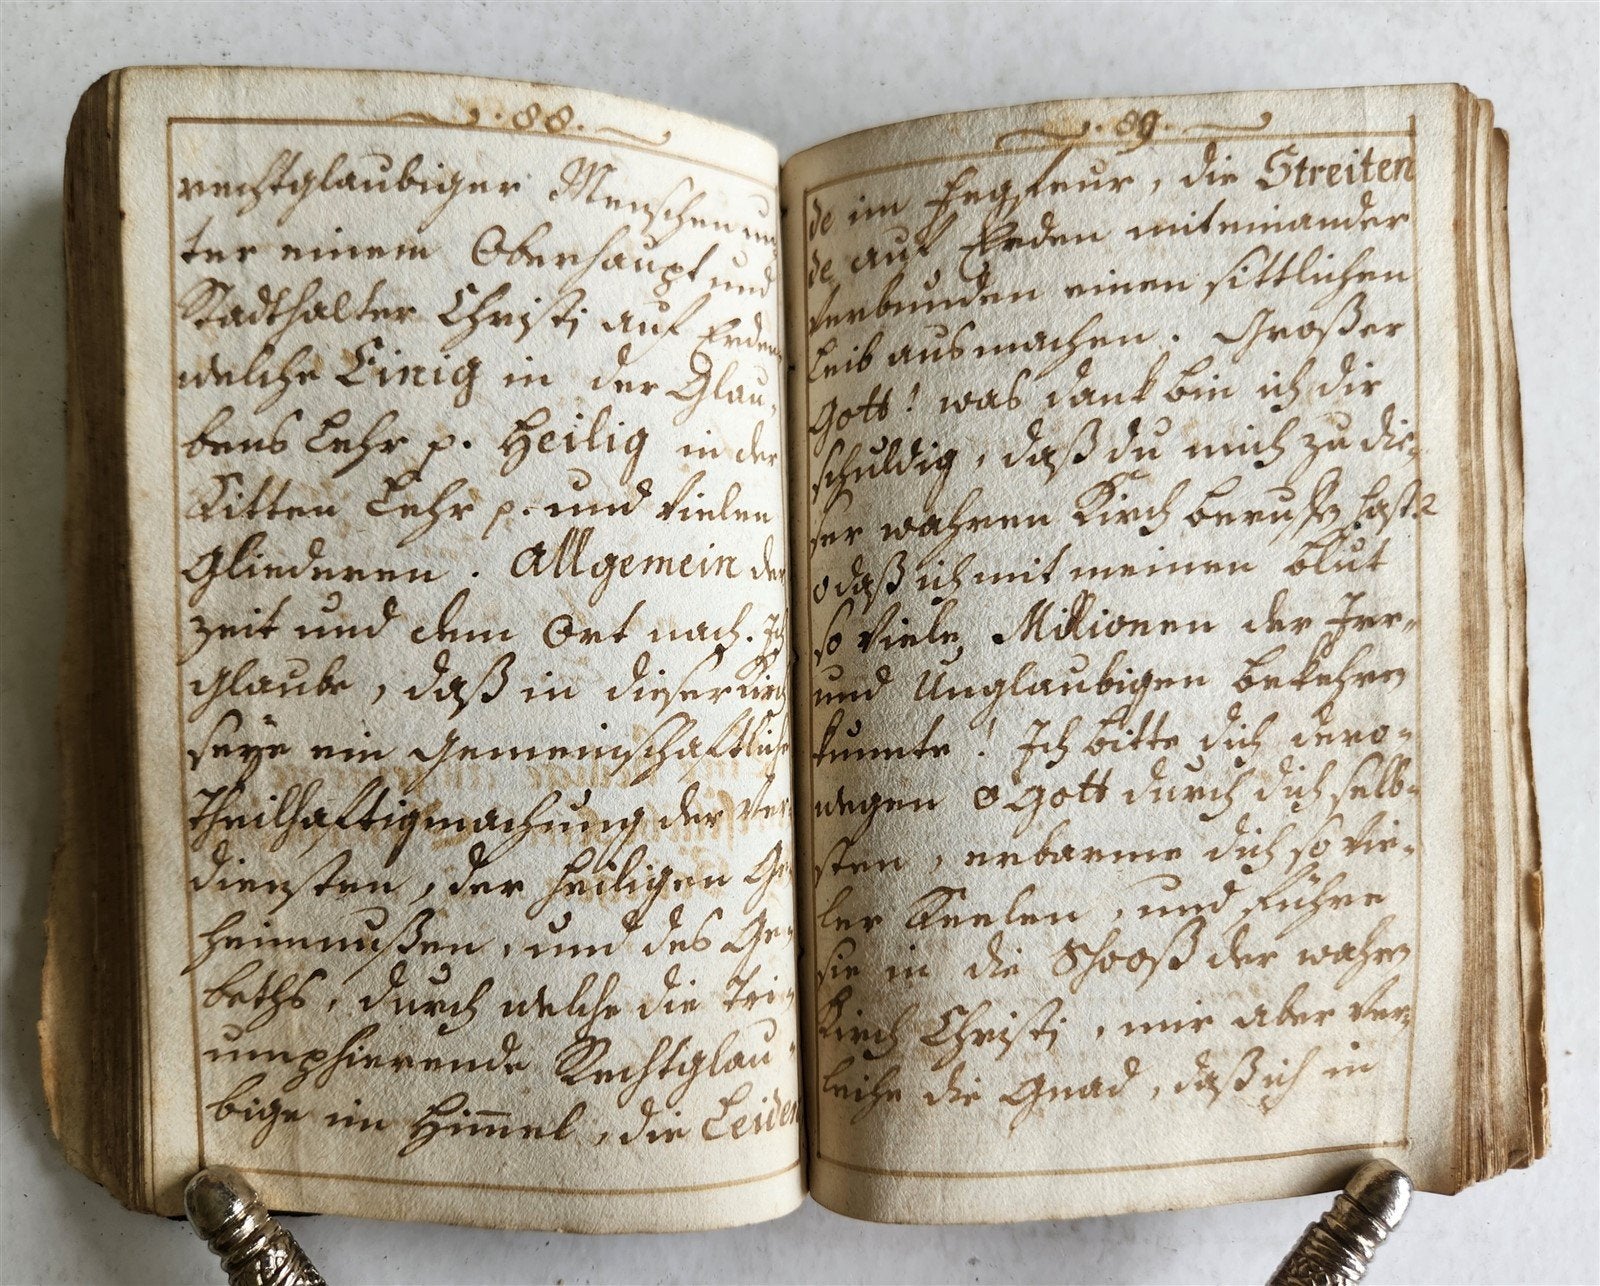 88.
rechtglaubiger Menschen un¬
ter einem Oberhaupt und
Stadthalter Christi auf Erden
welche Einig in der Glau¬
bens Lehr p. Heilig in der
Sitten Lehr p. und vielen
Gliederen. Allgemein der
zeit und dem Ort nach. Ich
glaube, daß in dieser Kirch
seye ein gemeinschaftliche
Theilhaftigmachung der Ver¬
diensten, der heiligen Ge¬
heimnußen, und des Ge¬
beths, durch welche die Tri¬
umphierende Rechtglau¬
bige im Himmel, die Leiden
89.
de im Fegfeur, die Streiten
de auf Erden miteinander
verbunden einen sittlichen
Leib ausmachen. Großer
Gott! was dank bin ich dir
schuldig, daß du mich zu die¬
ser wahren Kirch beruffen hast?
o daß ich mit meinen Blut
so viele Millionen der Irr¬
und Unglaubigen bekehren
kunnte! Ich bitte dich dero¬
wegen o Gott durch dich selb¬
sten, erbarme dich so vie¬
ler Seelen, und führe
sie in die Schooß der wahren
Kirch Christi, mir aber ver¬
leihe die Gnad, daß ich in